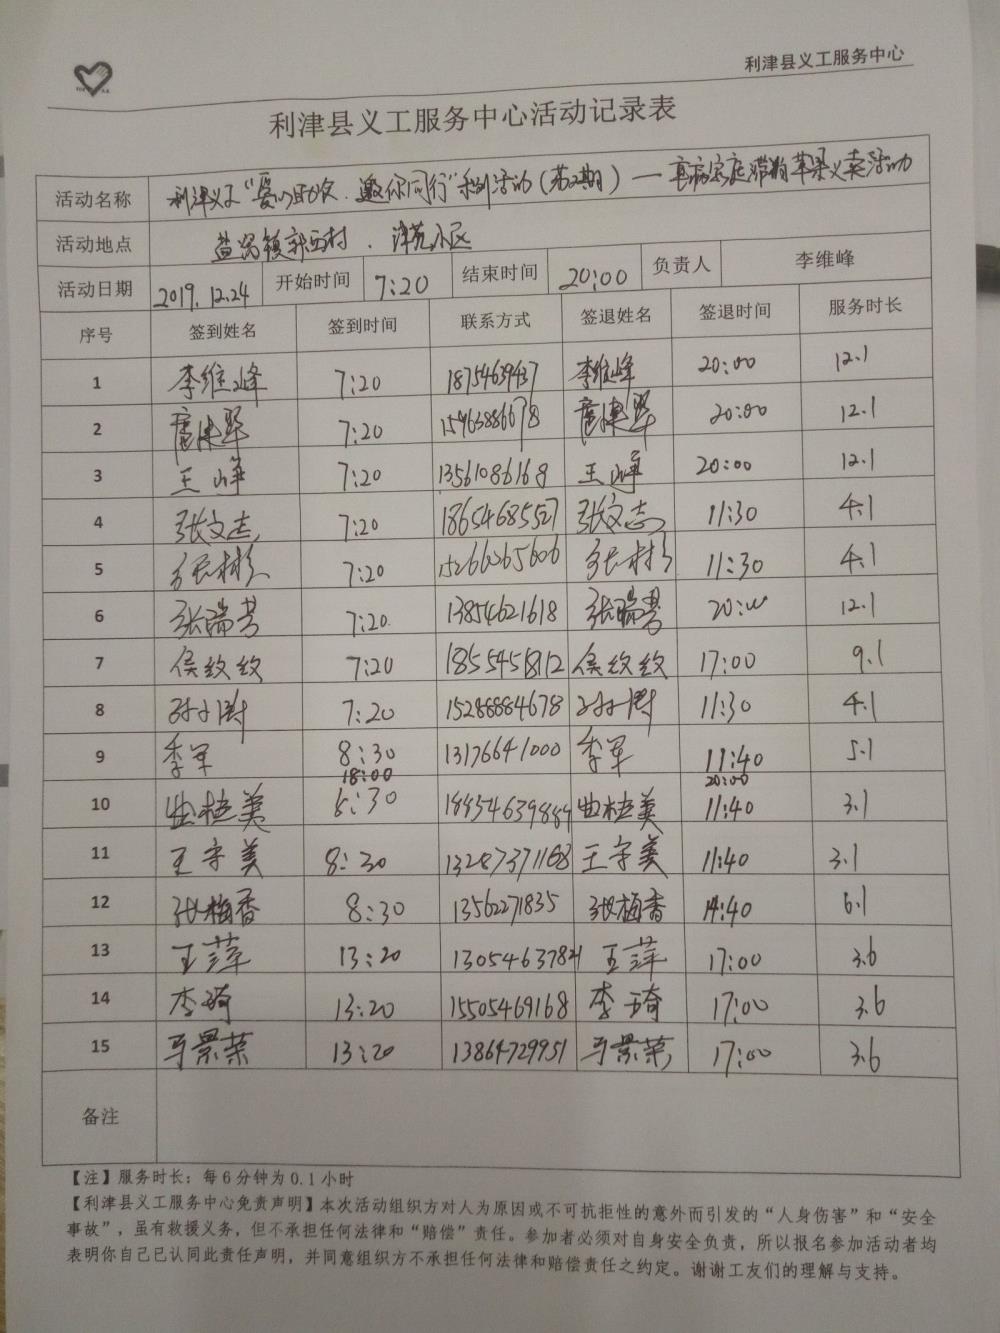 利津县义工服务中心
利津县义工服务中心活动记录表
活动名称 利津义工"爱心 邀你同行"系列活动(第 期)—— 家庭滞销苹果义卖活动
活动地点 盐窝镇郭西村、津苑小区
活动日期 2019.12.24 开始时间 7:20 结束时间 20:00 负责人 李维峰
序号 签到姓名 签到时间 联系方式 签退姓名 签退时间 服务时长
1 李维峰 7:20 18754639437 李维峰 20:00 12.1
2 7:20 15963886678 20:00 12.1
3 王峰 7:20 13561086168 王峰 20:00 12.1
4 张文志 7:20 18654685527 张文志 11:30 4.1
5 张彬彬 7:20 15266265606 张彬彬 11:30 4.1
6 张瑞芳 7:20 13854621618 张瑞芳 20:00 12.1
7 侯纹纹 7:20 18554518112 侯纹纹 17:00 9.1
8 7:20 15288884678 11:30 4.1
9 季军 8:30 13176641000 季军 11:40 5.1
18:00 20:00
10 曲桂美 8:30 18454639889 曲桂美 11:40 3.1
11 王守美 8:30 13287371168 王守美 11:40 3.1
12 张梅香 8:30 13562271835 张梅香 14:40 6.1
13 王萍 13:20 13054637821 王萍 17:00 3.6
14 李琦 13:20 15505469168 李琦 17:00 3.6
15 马景荣 13:20 13864729951 马景荣 17:00 3.6
备注
【注】服务时长：每6分钟为0.1小时
【利津县义工服务中心免责声明】本次活动组织方对人为原因或不可抗拒性的意外而引发的“人身伤害”和“安全
事故”，虽有救援义务，但不承担任何法律和“赔偿”责任。参加者必须对自身安全负责，所以报名参加活动者均
表明你自己已认同此责任声明，并同意组织方不承担任何法律和赔偿责任之约定。谢谢工友们的理解与支持。